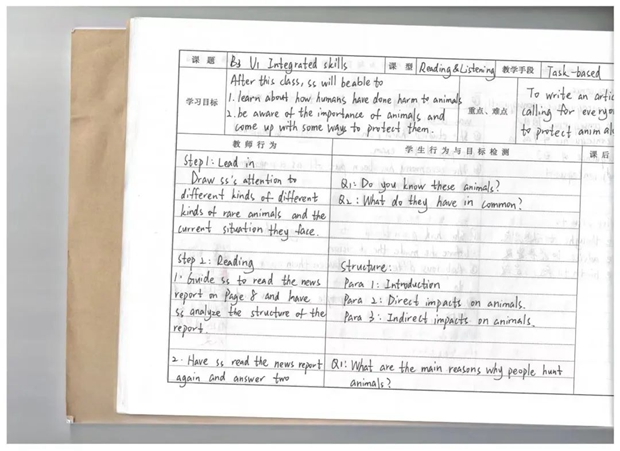 课 题
B3 U1 Integrated skills
课 型
Reading&Listening
教学手段
Task-based
学习目标
After this class, ss will beable to
1. learn about how humans have done harm to animals
2. be aware of the importance of animals and
come up with some ways to protect them.
重点、难点
To write an artic
calling for everyo
to protect animal
教 师 行 为
学 生 行 为 与 目 标 检 测
课 后
Step1: Lead in
Draw ss's attention to
different kinds of different
kinds of rare animals and the
current situation they face.
Q1: Do you know these animals?
Q2: What do they have in common?
step 2: Reading
1. Guide ss to read the news
report on Page 8 and have
ss analyze the structure of the
report.
Structure:
Para 1: Introduction
Para 2: Direct impacts on animals.
Para 3: Indirect impacts on animals.
2. Have ss read the news report
again and answer two
Q1: What are the main reasons why people hunt
animals?